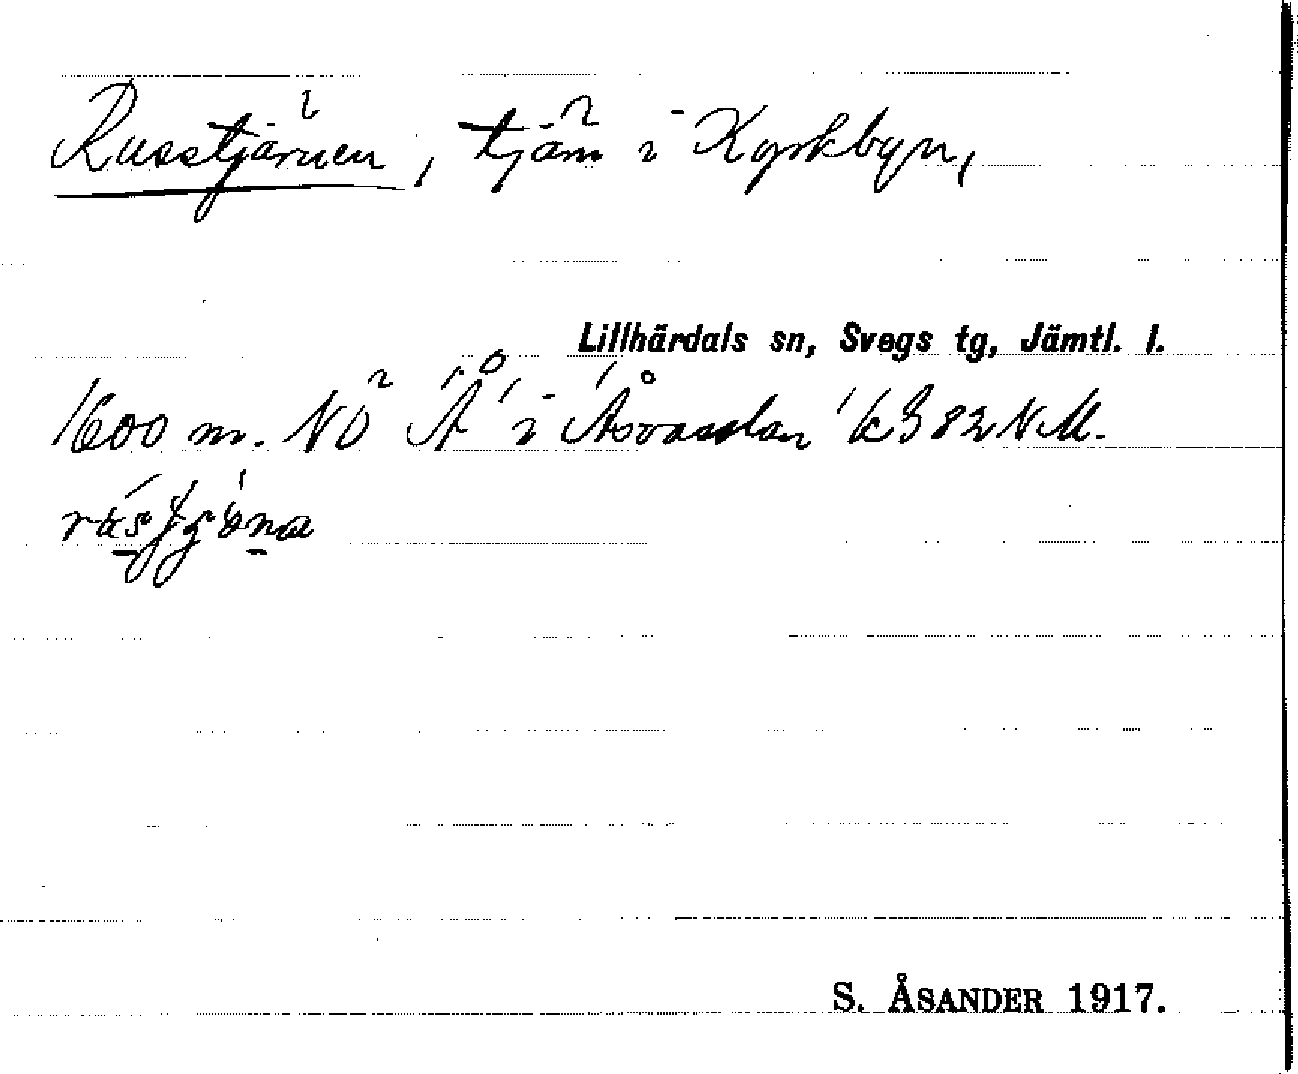 Russtjärnen, tjärn i Kyrkbyn,
Lillhärdals sn, Svegs tg, Jämtl. l.
1600 m. NO "Å" i Åsvasslan k382NM.
S. ÅSANDER 1917.